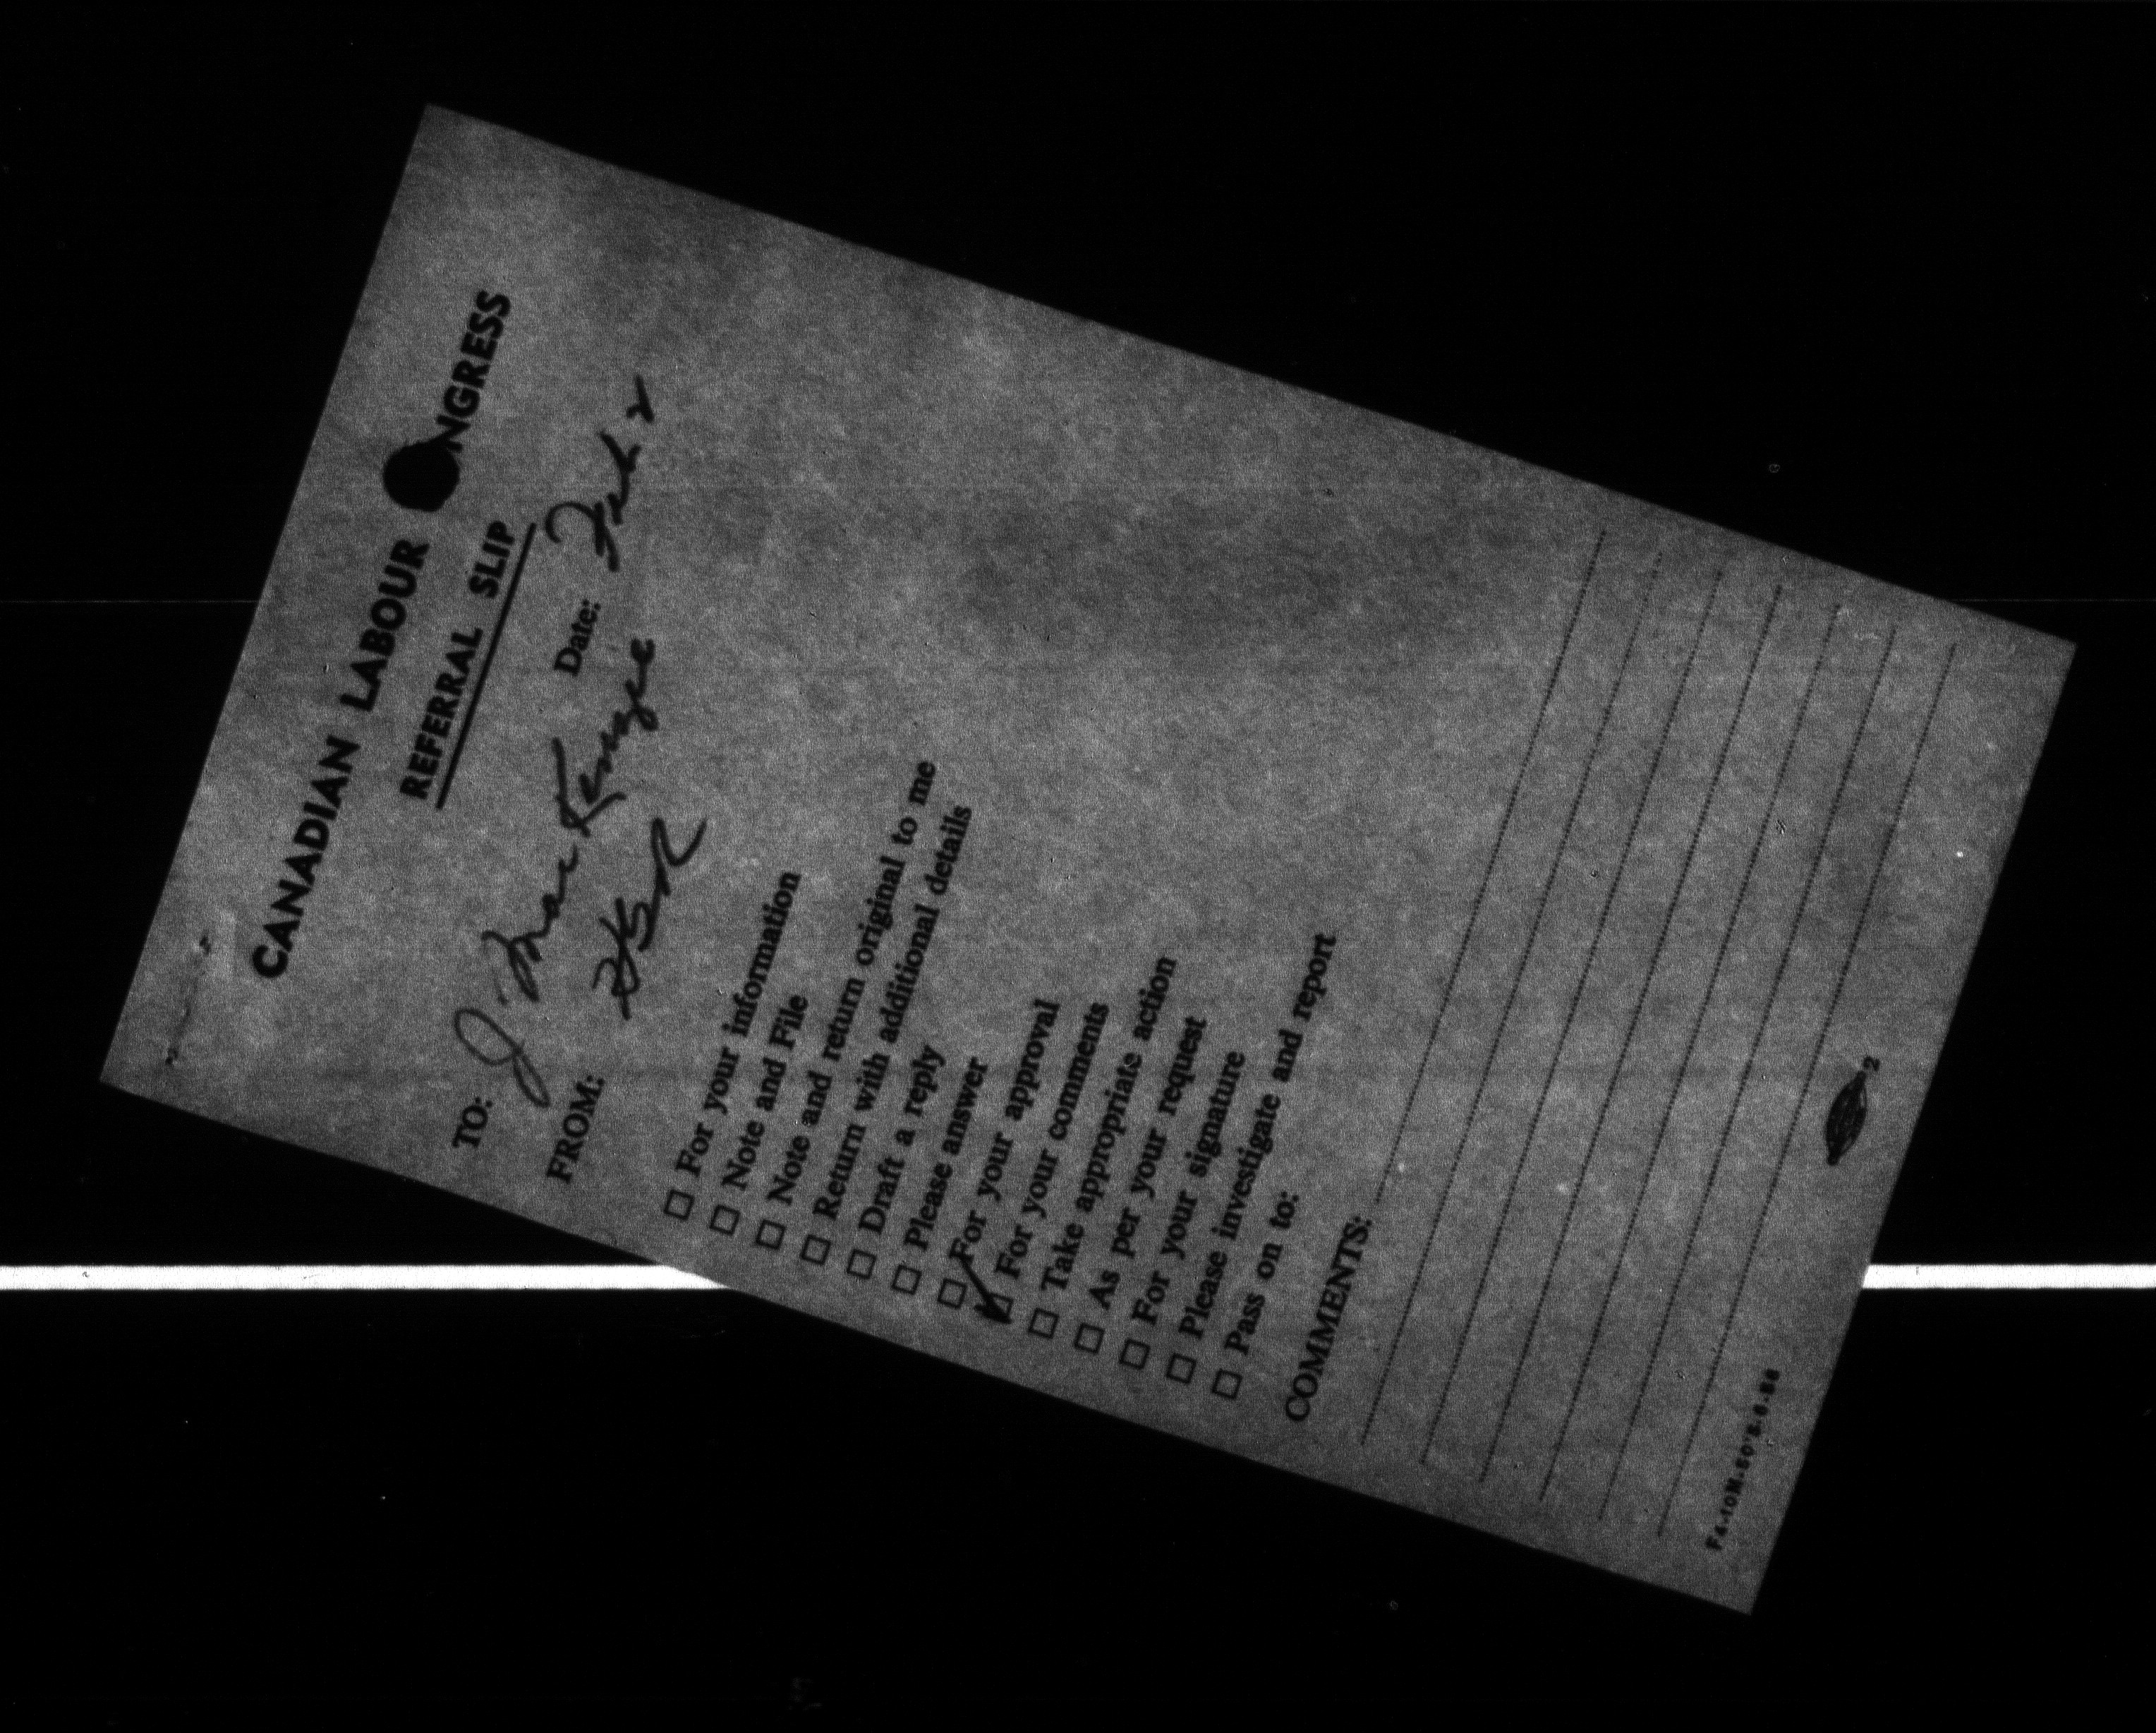 CANADIAN LABOUR NGRESS
REFERRAL SLIP
TO: J. MacKenzie Date: Feb. 2
FROM:
☐ For your information
☐ Note and File
☐ Note and return original to me
☐ Return with additional details
☐ Draft a reply
☐ Please answer
☐ For your approval
☑ For your comments
☐ Take appropriate action
☐ As per your request
☐ For your signature
☐ Please investigate and report
☐ Pass on to:
COMMENTS:
2